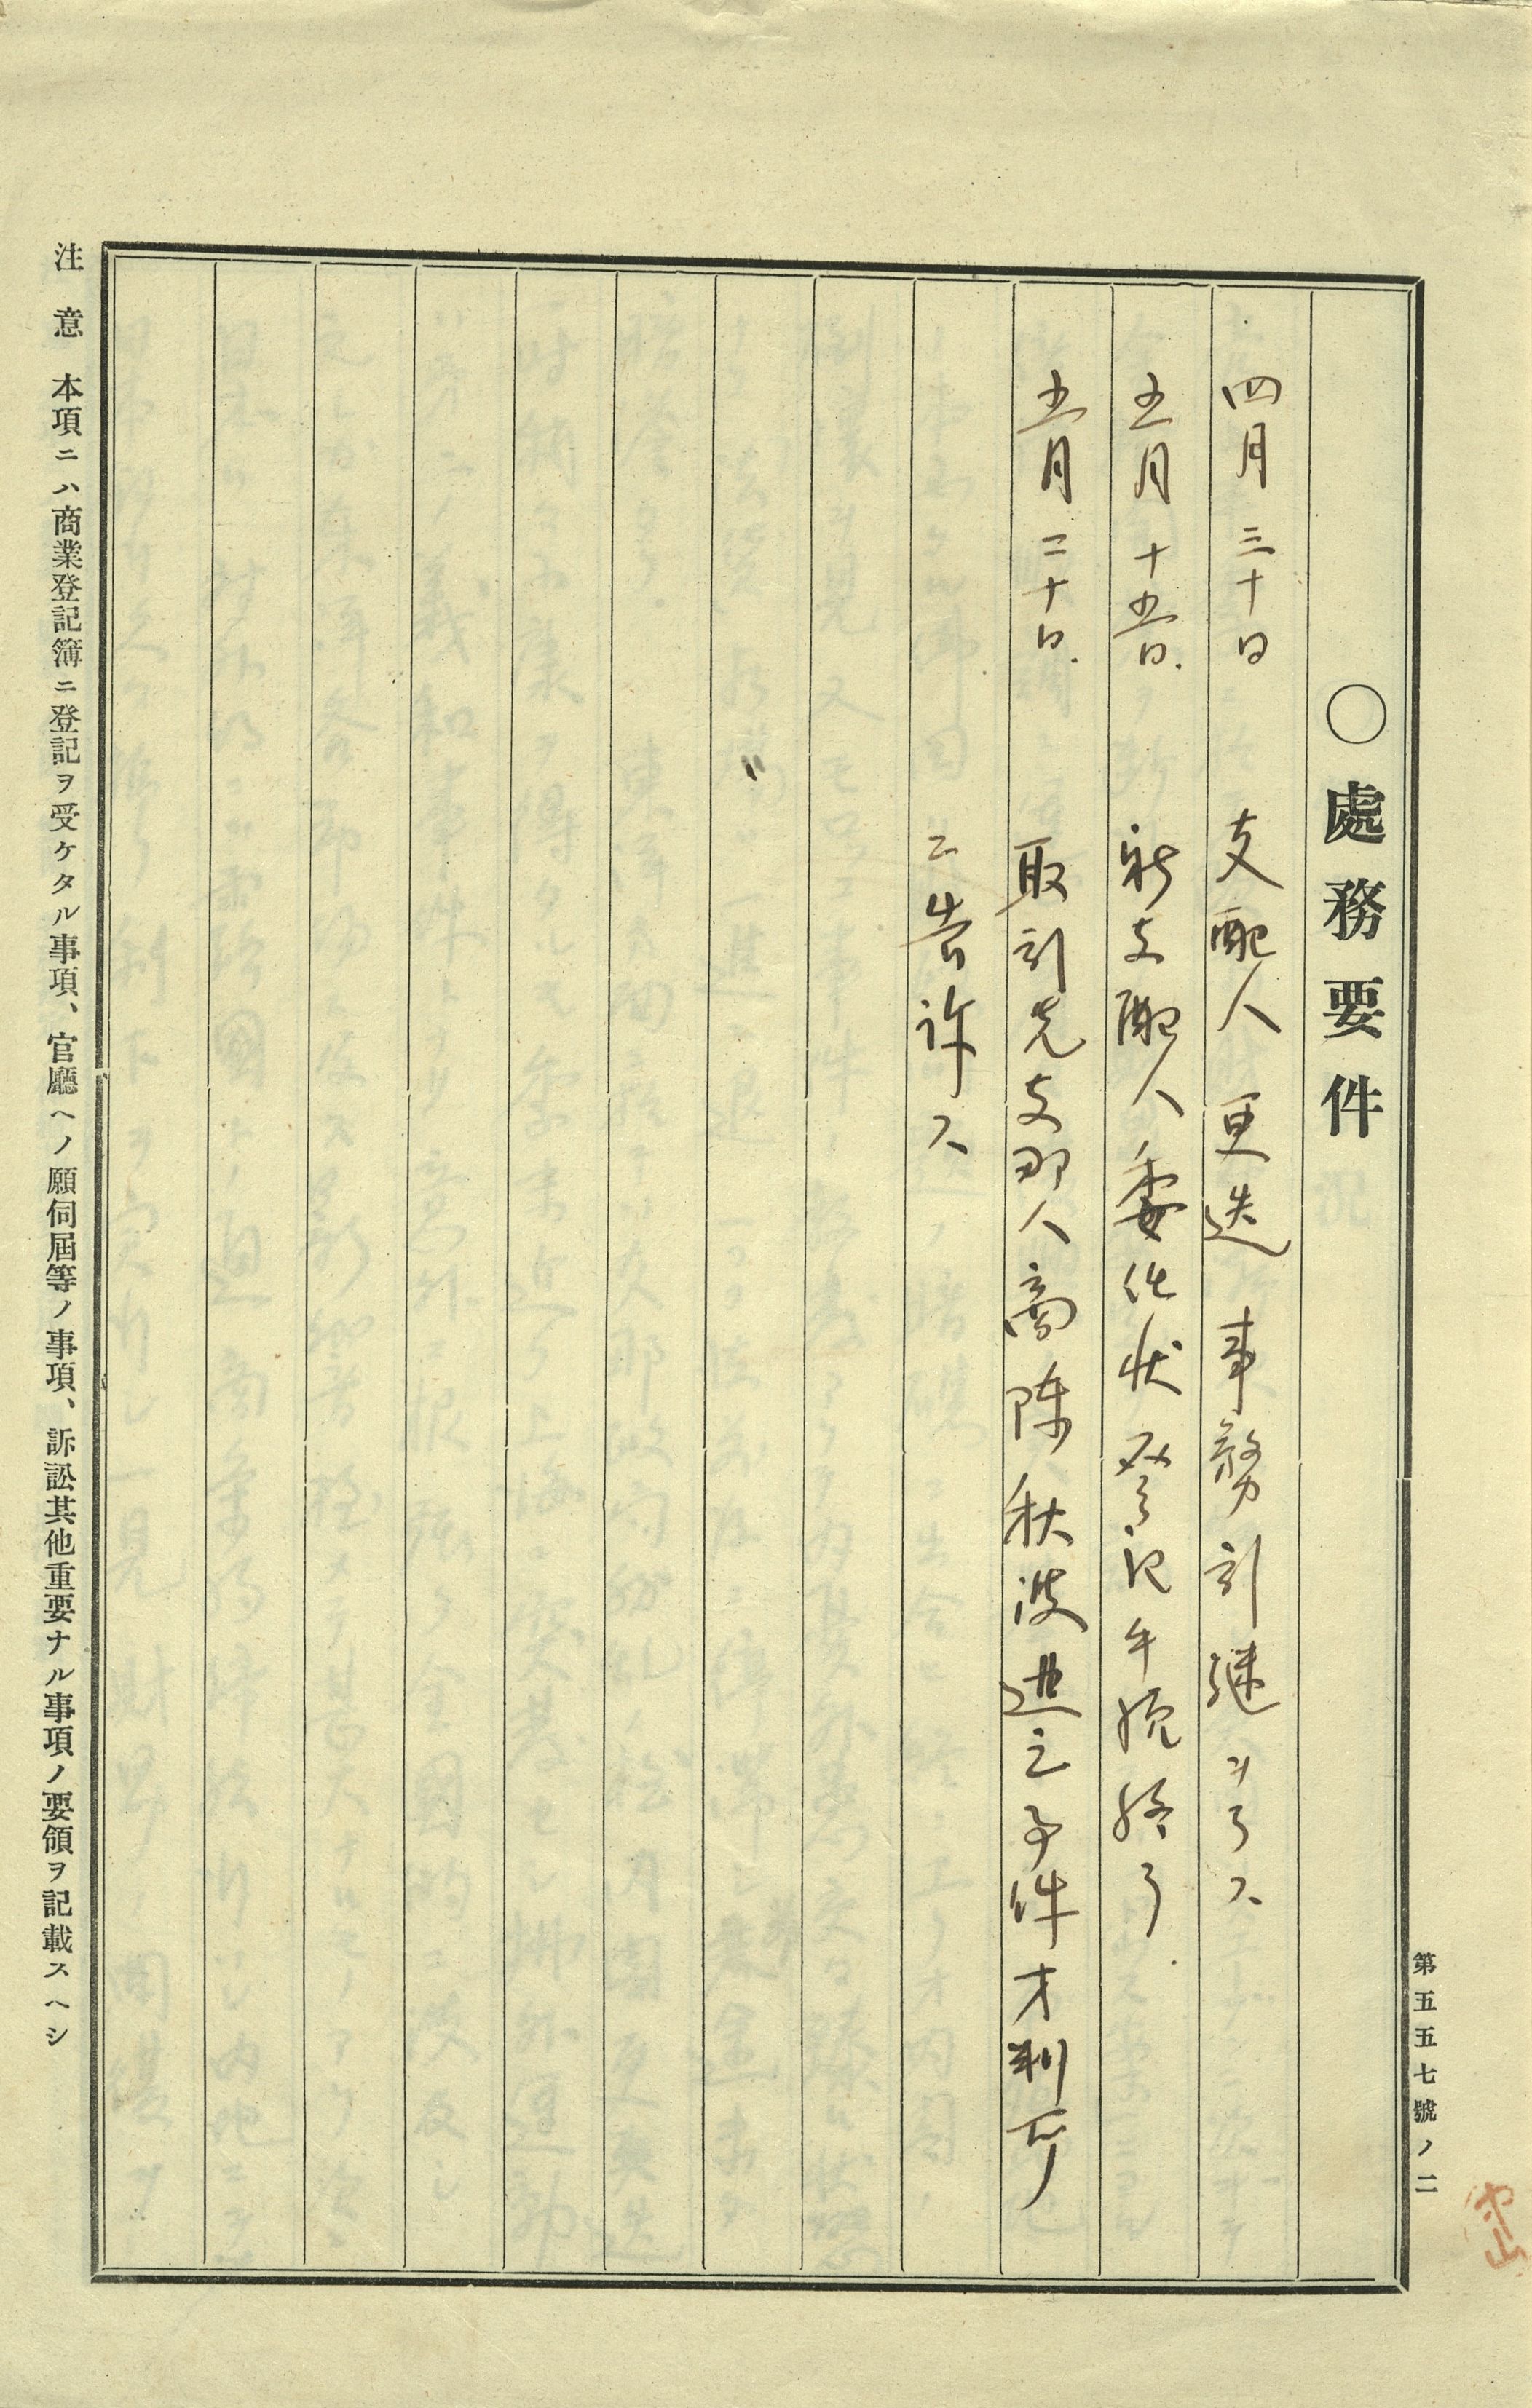 第五五七號ノ二
○處務要件
四月三十日 支配人更迭事務引継ヲ了ス
五月十五日. 新支配人委任状登記手続終了.
五月二十日. 取引先支那人商陳秋波進之予件才判所
ニ告訴ス
注意 本項ニハ商業登記簿ニ登記ヲ受ケタル事項、官廳ヘノ願伺屆等ノ事項、訴訟其他重要ナル事項ノ要領ヲ記載スヘシ